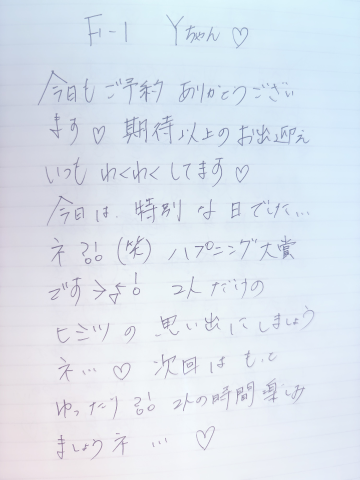 F-1 Yちゃん♡
今日もご予約ありがとうござい
ます♡ 期待以上のお出迎え
いつもわくわくしてます♡
今日は、特別な日でした…
ネ!! (笑) ハプニング大賞
です 2人だけの
ヒミツの思い出にしましょう
ネ…♡ 次回はもっと
ゆったり!! 2人の時間楽しみ
ましょうネ…♡